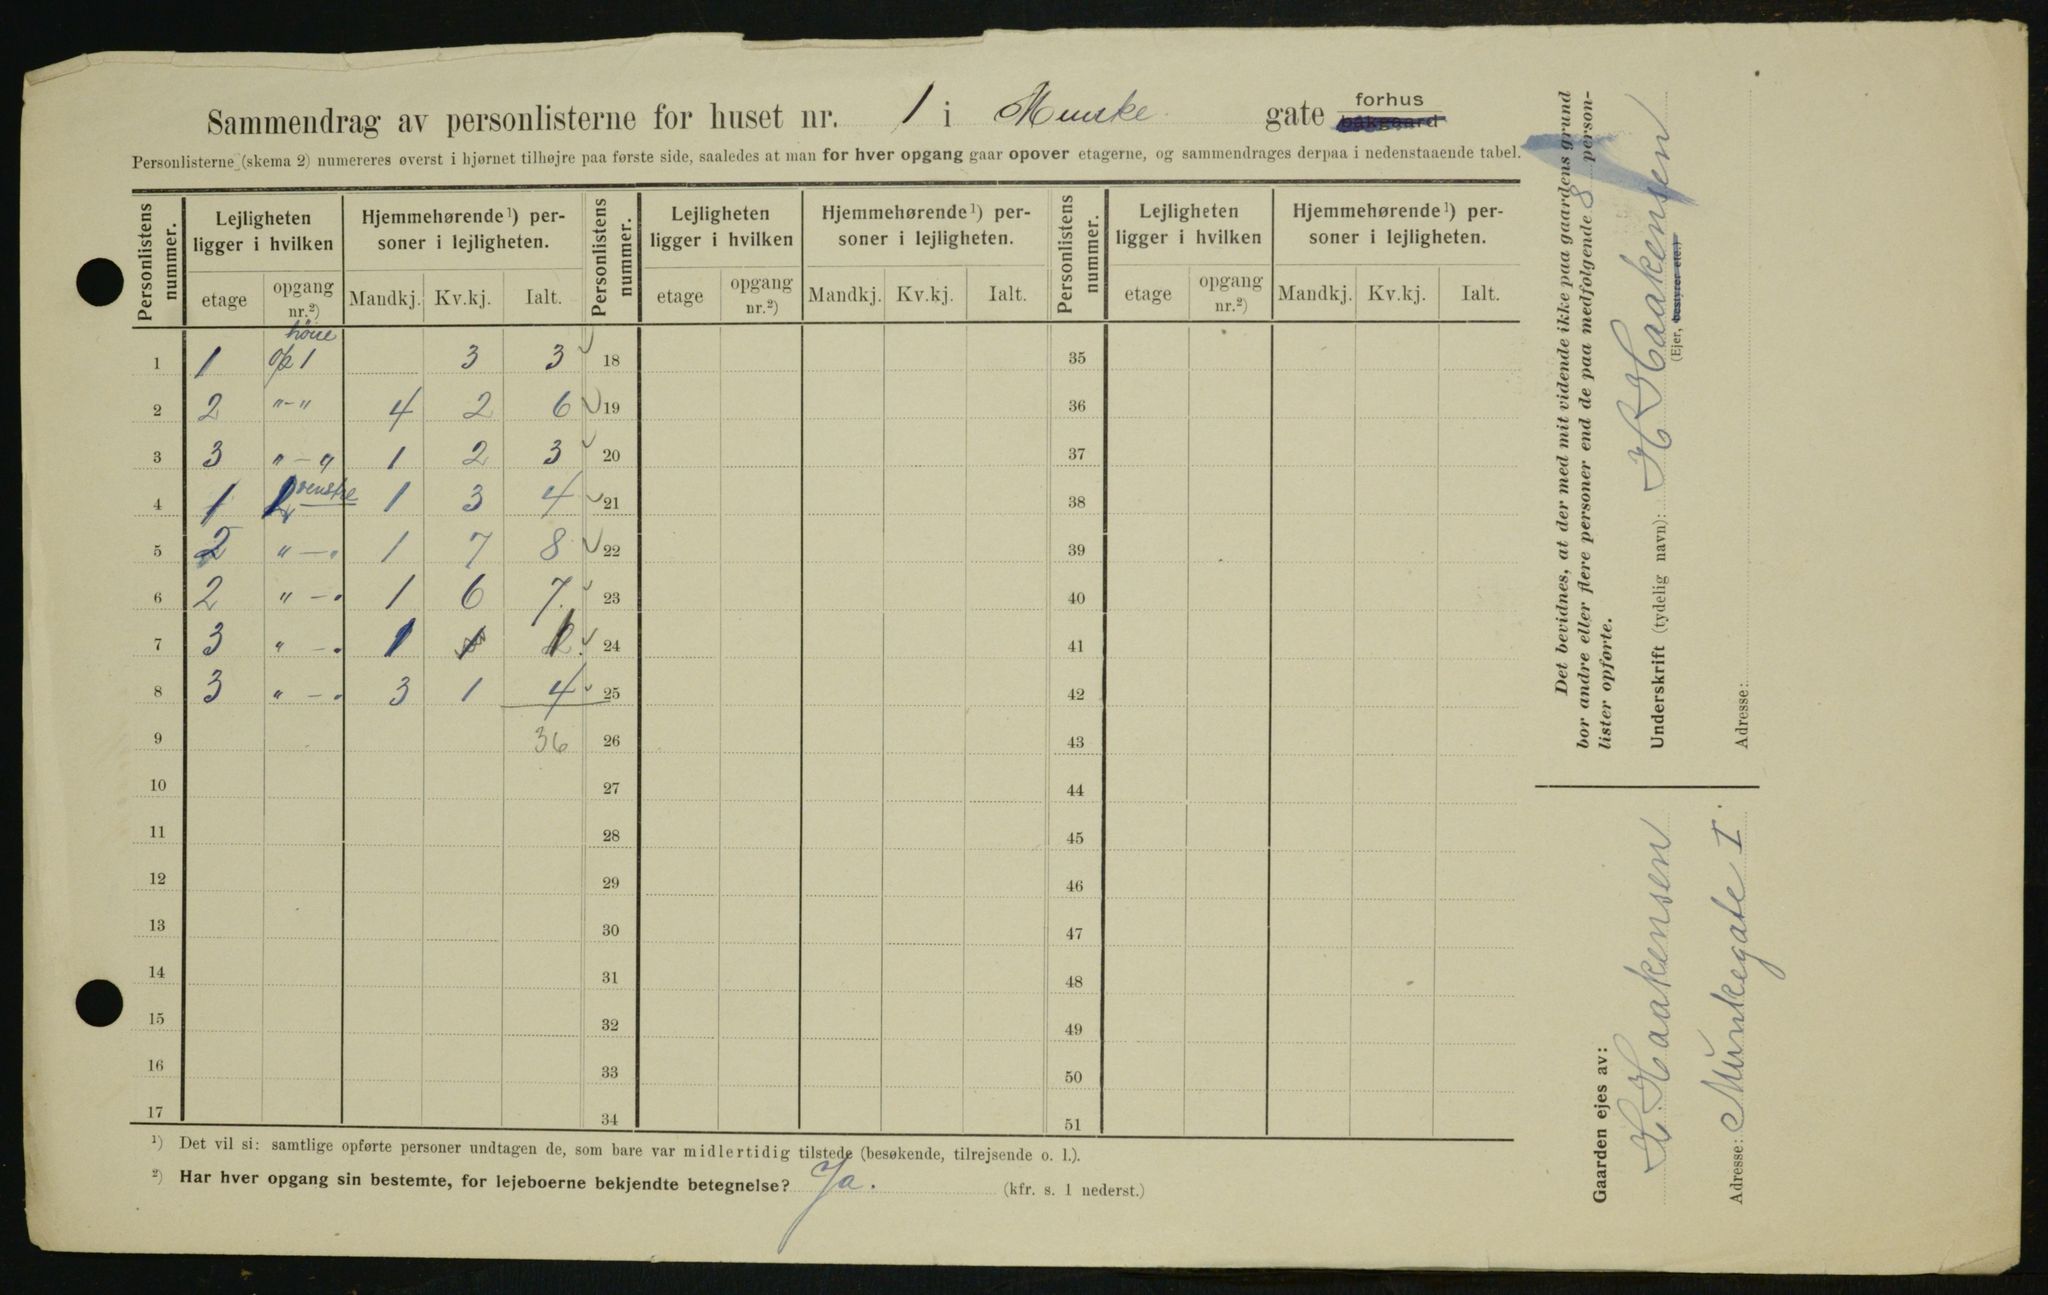 Sammendrag av personlisterne for huset nr. 1 i Munke gate forhus bakgaard
Personlisterne (skema 2) numereres øverst i hjørnet tilhøjre paa første side, saaledes at man for hver opgang gaar opover etagerne, og sammendrages derpaa i nedenstaaende tabel.
Personlistens nummer. Lejligheten ligger i hvilken Hjemmehørende ¹) personer i lejligheten. Personlistens nummer. Lejligheten ligger i hvilken Hjemmehørende ¹) personer i lejligheten. Personlistens nummer. Lejligheten ligger i hvilken Hjemmehørende ¹) personer i lejligheten.
etage opgang nr.²) Mandkj. Kv.kj. Ialt. etage opgang nr.²) Mandkj. Kv.kj. Ialt. etage opgang nr.²) Mandkj. Kv.kj. Ialt.
høire
1 1 op 1 3 3 18 35
2 2 "-" 4 2 6 19 36
3 3 "-" 1 2 3 20 37
4 1 2 venstre 1 3 4 21 38
5 2 "-" 1 7 8 22 39
6 2 "-" 1 6 7 23 40
7 3 "-" 1 1 24 41
8 3 "-" 3 1 4 25 42
9 36 26 43
10 27 44
11 28 45
12 29 46
13 30 47
14 31 48
15 32 49
16 33 50
17 34 51
¹) Det vil si: samtlige opførte personer undtagen de, som bare var midlertidig tilstede (besøkende, tilrejsende o. l.).
²) Har hver opgang sin bestemte, for lejeboerne bekjendte betegnelse? Ja. (kfr. s. 1 nederst.)
Det bevidnes, at der med mit vidende ikke paa gaardens grund
bor andre eller flere personer end de paa medfølgende 8 person-
lister opførte.
Underskrift (tydelig navn): H Haakensen
(Ejer, bestyrer etc.)
Adresse:
Gaarden ejes av:
H. Haakensen
Adresse: Munkegate I.